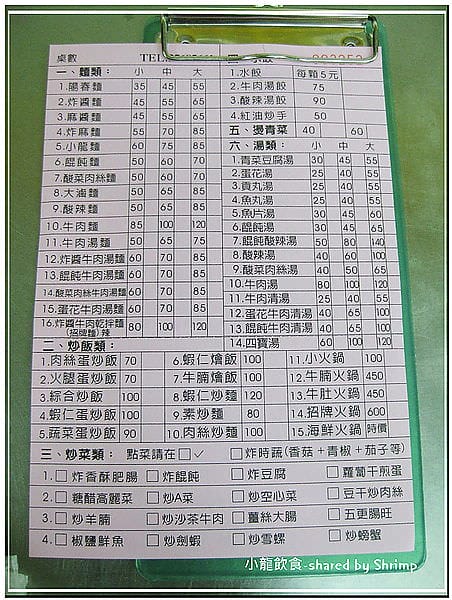 桌數
一、麵類： 小 中 大
1.陽春麵 35 45 55
2.炸醬麵 45 55 65
3.麻醬麵 45 55 65
4.炸麻麵 55 70 85
5.小龍麵 60 75 85
6.餛飩麵 50 60 70
7.酸菜肉絲麵 50 60 70
8.大滷麵 50 60 70
9.酸辣麵 50 60 70
10.牛肉麵 85 100 120
11.牛肉湯麵 50 65 75
12.炸醬牛肉湯麵 60 70 85
13.餛飩牛肉湯麵 60 70 85
14.酸菜肉絲牛肉湯麵 60 70 85
15.蛋花牛肉湯麵 60 70 85
16.炸醬牛肉乾拌麵 80 100 120
(招牌麵)辣
1.水餃 每顆5元
2.牛肉湯餃 75
3.酸辣湯餃 90
4.紅油炒手 50
五、燙青菜 40 60
六、湯類： 小 中 大
1.青菜豆腐湯 30 45 55
2.蛋花湯 25 40 55
3.貢丸湯 25 40 55
4.魚丸湯 25 40 55
5.魚片湯 30 45 60
6.餛飩湯 30 45
7.餛飩酸辣湯 50 80 140
8.酸辣湯 40 60 100
9.酸菜肉絲湯 40 50 65
10.牛肉湯 80 100 120
11.牛肉清湯 25 40 55
12.蛋花牛肉清湯 40 50 65
13.餛飩牛肉清湯 40 50 65
14.四寶湯 60 100 120
二、炒飯類：
1.肉絲蛋炒飯 70 6.蝦仁燴飯 100 11.小火鍋 100
2.火腿蛋炒飯 70 7.牛腩燴飯 100 12.牛腩火鍋 450
3.綜合炒飯 100 8.蝦仁炒麵 120 13.牛肚火鍋 450
4.蝦仁蛋炒飯 100 9.素炒麵 80 14.招牌火鍋 600
5.蔬菜蛋炒飯 90 10.肉絲炒麵 100 15.海鮮火鍋 時價
三、炒菜類： 點菜請在□✓ □炸時蔬(香菇+青椒+茄子等)
1.□炸香酥肥腸 □炸餛飩 □炸豆腐 □蘿蔔干煎蛋
2.□糖醋高麗菜 □炒A菜 □炒空心菜 □豆干炒肉絲
3.□炒羊腩 □炒沙茶牛肉 □薑絲大腸 □五更腸旺
4.□椒鹽鮮魚 □炒劍蝦 □炒雪螺 □炒螃蟹
小龍飲食-shared by Shrimp